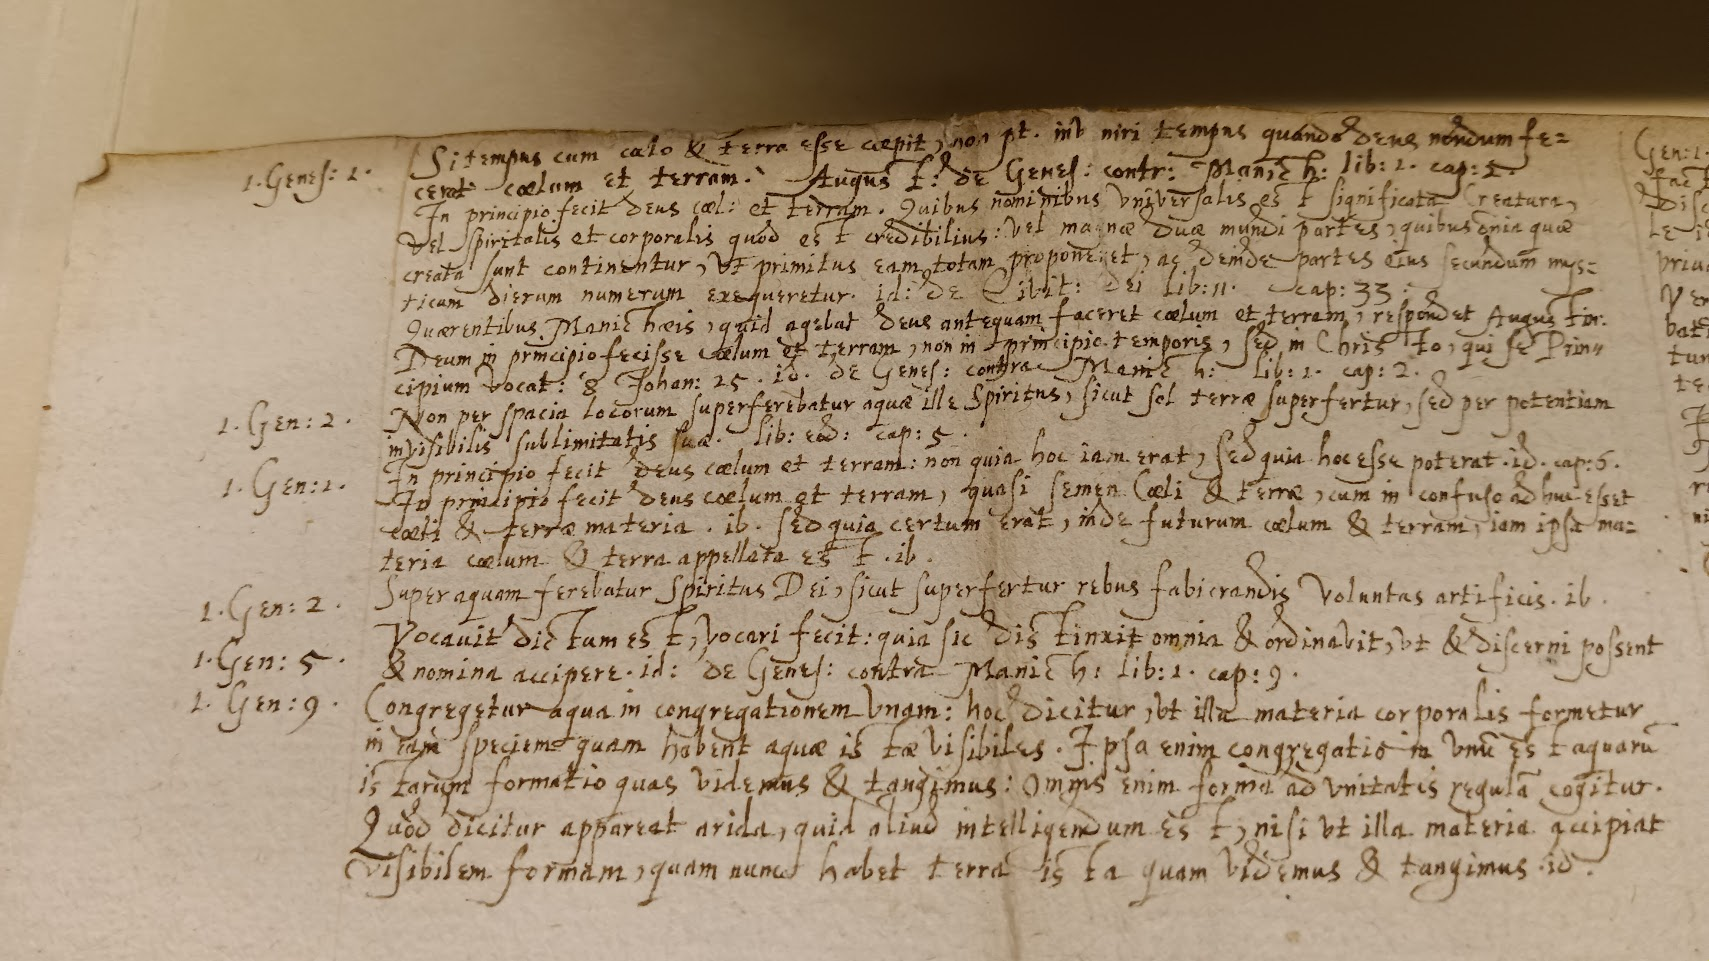 1. Genes: 1. Si tempus cum cœlo & terra esse cœpit, non pt. inveniri tempus quando deus nondum fe=
cerat cœlum et terram. August: de Genes: contr: Manich: lib: 1. cap:
In principio fecit deus cœl: et terram. Quibus nominibus Vniversalis est significata Creatura,
Vel spiritalis et corporalis quod est credibilius: Vel magnæ duæ mundi partes, quibus omnia quæ
creata sunt continentur, Vt primitus eam totam proponeret, ac deinde partes eius secundum mys=
ticum dierum numerum exequeretur. id: de Civit: dei lib: 11. cap: 33.
Quærentibus Manichæis, quid agebat deus antequam faceret cœlum et terram, respondet Augustin:
Deum in principio fecisse cœlum et terram, non in principio temporis, sed in Christo, qui se Prin=
cipium Vocat: 8 Johan: 25. id. de Genes: contra Manich: lib: 1. cap: 2.
1. Gen: 2. Non per spacia locorum superferebatur aquæ ille Spiritus, sicut sol terræ superfertur, sed per potentiam
invisibilis sublimitatis suæ. lib: eod: cap: 5.
1. Gen: 1. In principio fecit deus cœlum et terram: non quia hoc iam erat, sed quia hoc esse poterat. id. cap: 6.
In principio fecit deus cœlum et terram, quasi semen Cœli & terræ, cum in confuso adhuc esset
cœli & terræ materia. ib. sed quia certum erat, inde futurum cœlum & terram, iam ipsa ma=
teria cœlum & terra appellata est. ib.
1. Gen: 2. Super aquam ferebatur Spiritus Dei, sicut superfertur rebus fabicrandis Voluntas artificis. ib.
1. Gen: 5. Vocavit dictum est, vocari fecit: quia sic distinxit omnia & ordinavit, vt & discerni possent
& nomina accipere. id: de Genes: contra Manich: lib: 1. cap: 9.
1. Gen: 9. Congregetur aqua in congregationem Vnam: hoc dicitur, vt illa materia corporalis formetur
in eam speciem quam habent aquæ istæ Visibiles. Ipsa enim congregatio in Vnū est aquarū
istarum formatio quas videmus & tangimus: Omnis enim forma ad Vnitatis regulā cogitur.
Quod dicitur appareat arida, quid aliud intelligendum est, nisi Vt illa materia accipiat
Visibilem formam, quam nunc habet terra ista quam Videmus & tangimus. id.
Gen: 1.